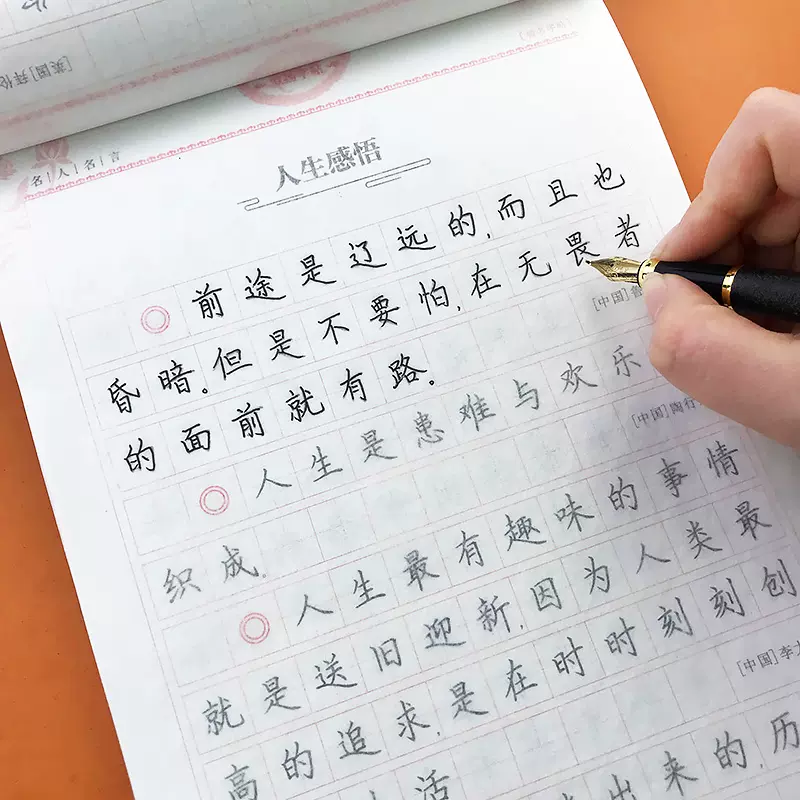 [英国]拜伦
名人名言
人生感悟
前途是辽远的,而且也
昏暗。但是不要怕,在无畏者
的面前就有路。
[中国]鲁
人生是患难与欢乐
织成.
[中国]陶行
人生最有趣味的事情
就是送旧迎新,因为人类最
高的追求,是在时时刻刻创
活
[中国]李
出来的,历